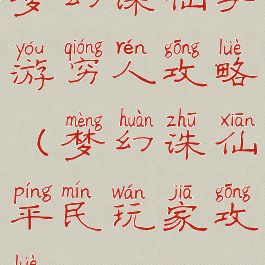 yóu qióng rén gōng lüè
游穷人攻略
mèng huàn zhū xiān
（梦幻诛仙
píng mín wán jiā gōng
平民玩家攻
lüè